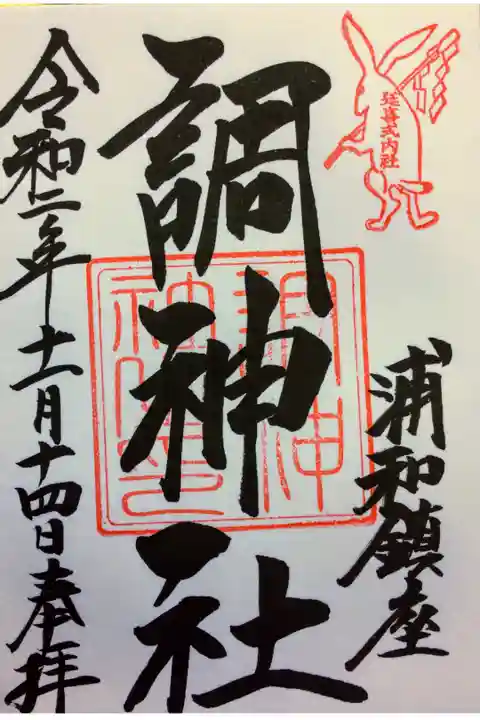 延喜式内社
浦和鎮座
調神社
令和二年十一月十四日奉拝